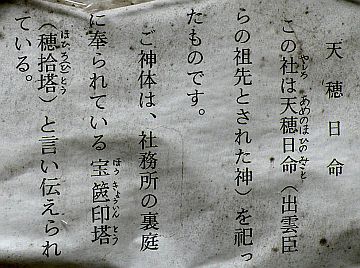 天穂日命
この社は天穂日命（出雲臣
らの祖先とされた神）を祀っ
たものです。
ご神体は、社務所の裏庭
に奉られている宝篋印塔
（穂拾塔）と言い伝えられ
ている。